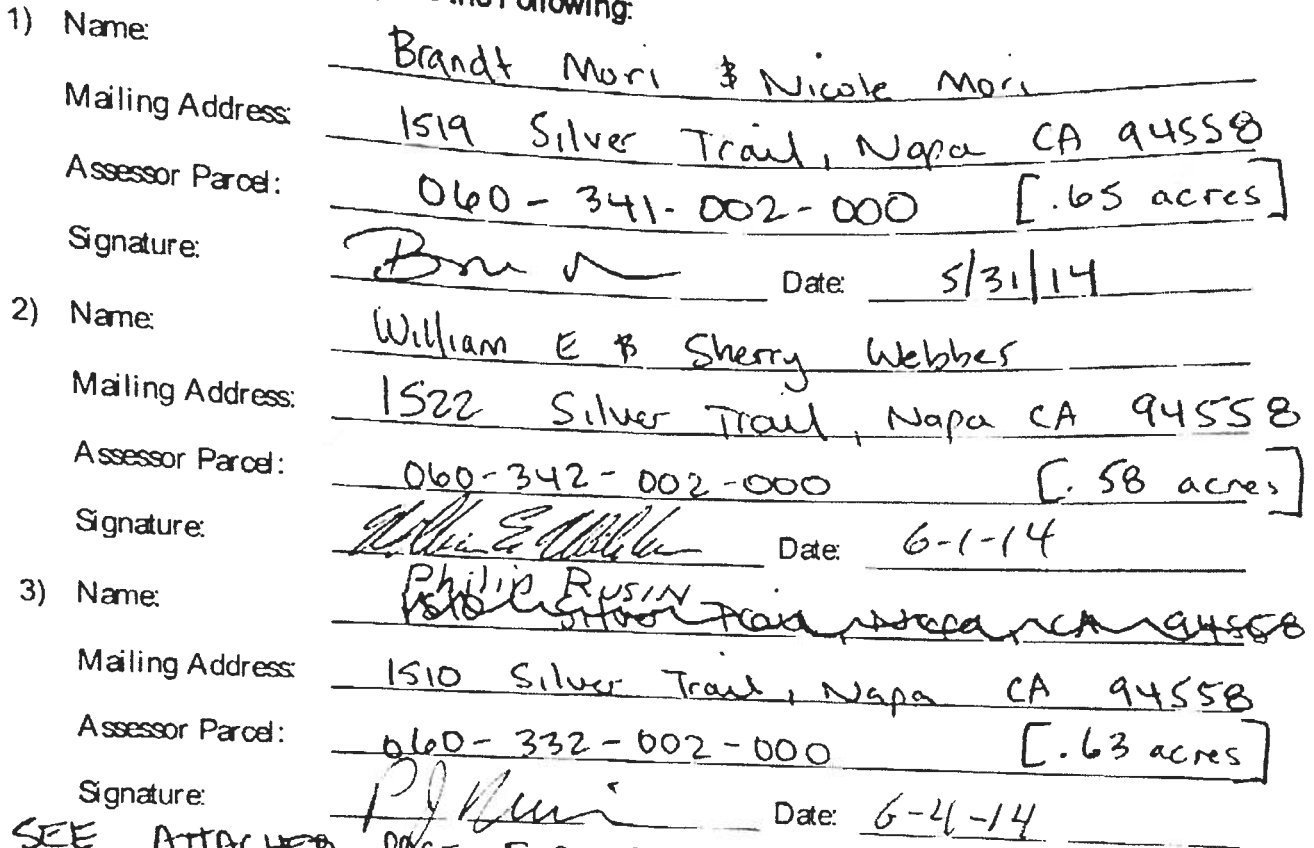 the Following:
1) Name: Brandt Mori & Nicole Mori
Mailing Address: 1519 Silver Trail, Napa CA 94558
Assessor Parcel: 060-341-002-000 [.65 acres]
Signature: Date: 5/31/14
2) Name: William E & Sherry Webber
Mailing Address: 1522 Silver Trail, Napa CA 94558
Assessor Parcel: 060-342-002-000 [.58 acres]
Signature: Date: 6-1-14
3) Name: Philip Rusin
1510 Silver Trail, Napa, CA 94558
Mailing Address: 1510 Silver Trail, Napa CA 94558
Assessor Parcel: 060-332-002-000 [.63 acres]
Signature: Date: 6-4-14
SEE ATTACHED